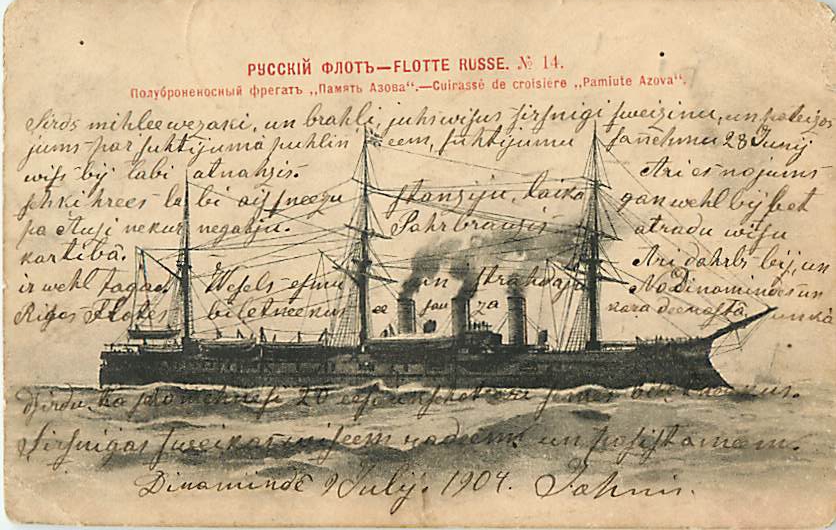 РУССКІЙ ФЛОТЪ—FLOTTE RUSSE. № 14.
Полуброненосный фрегатъ „Память Азова“.—Cuirassé de croisiére „Pamiute Azova“.
Sirds mihlee wezaki, un brahli, juhs wisus sirsnigi sweizinu, un pateizos
jums par suhtijumu suhtijumu sañehmu 28 Junij
wiss bij labi atnahzis. Ari es no jums
labi aisneezu stanziju, laika gan wehl bij bet
pa Ausi nekur negahju. Pahrbrauzis atradu wisu
kartibâ. Ari dahrbs bij, un
ir wehl tagad. Wesels esmu un strahdaju No Dinamindes un
Rigas Flotes biletneekus jau za kara deenastâ, un kâ
dsirdu, ka 20 biletneekus.
Sirsnigas sweikas wiseem radeem un pasistameem.
Dinamindê 9 Julij. 1904. Jahnis.